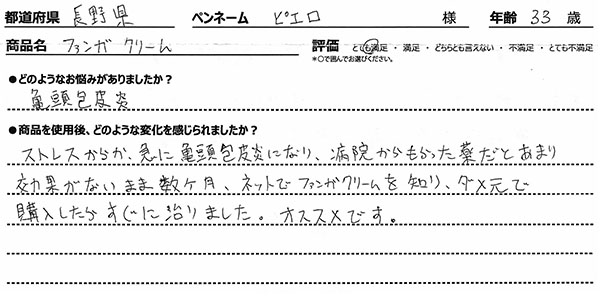 都道府県 長野県 ペンネーム ピエロ 様 年齢 33 歳
商品名 ファンガクリーム 評価 とても満足 ・ 満足 ・ どちらとも言えない ・ 不満足 ・ とても不満足
*〇で囲んでお選びください。
●どのようなお悩みがありましたか？
亀頭包皮炎
●商品を使用後、どのような変化を感じられましたか？
ストレスからか、急に亀頭包皮炎になり、病院からもらった薬だとあまり
効果がないまま数ヶ月、ネットでファンガクリームを知り、ダメ元で
購入したらすぐに治りました。オススメです。